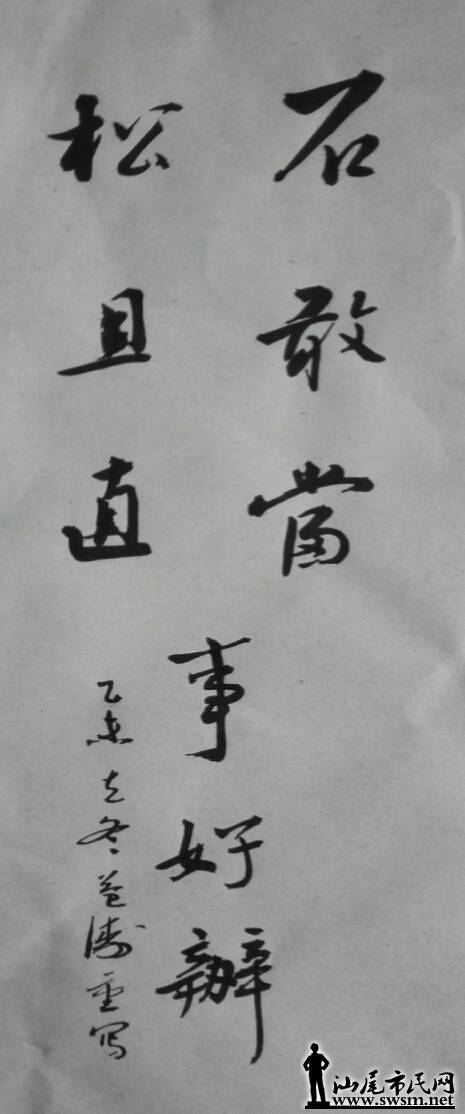 石敢當
松且直
事好辦
乙未立冬益陽重写
汕尾市民网
www.swsm.net